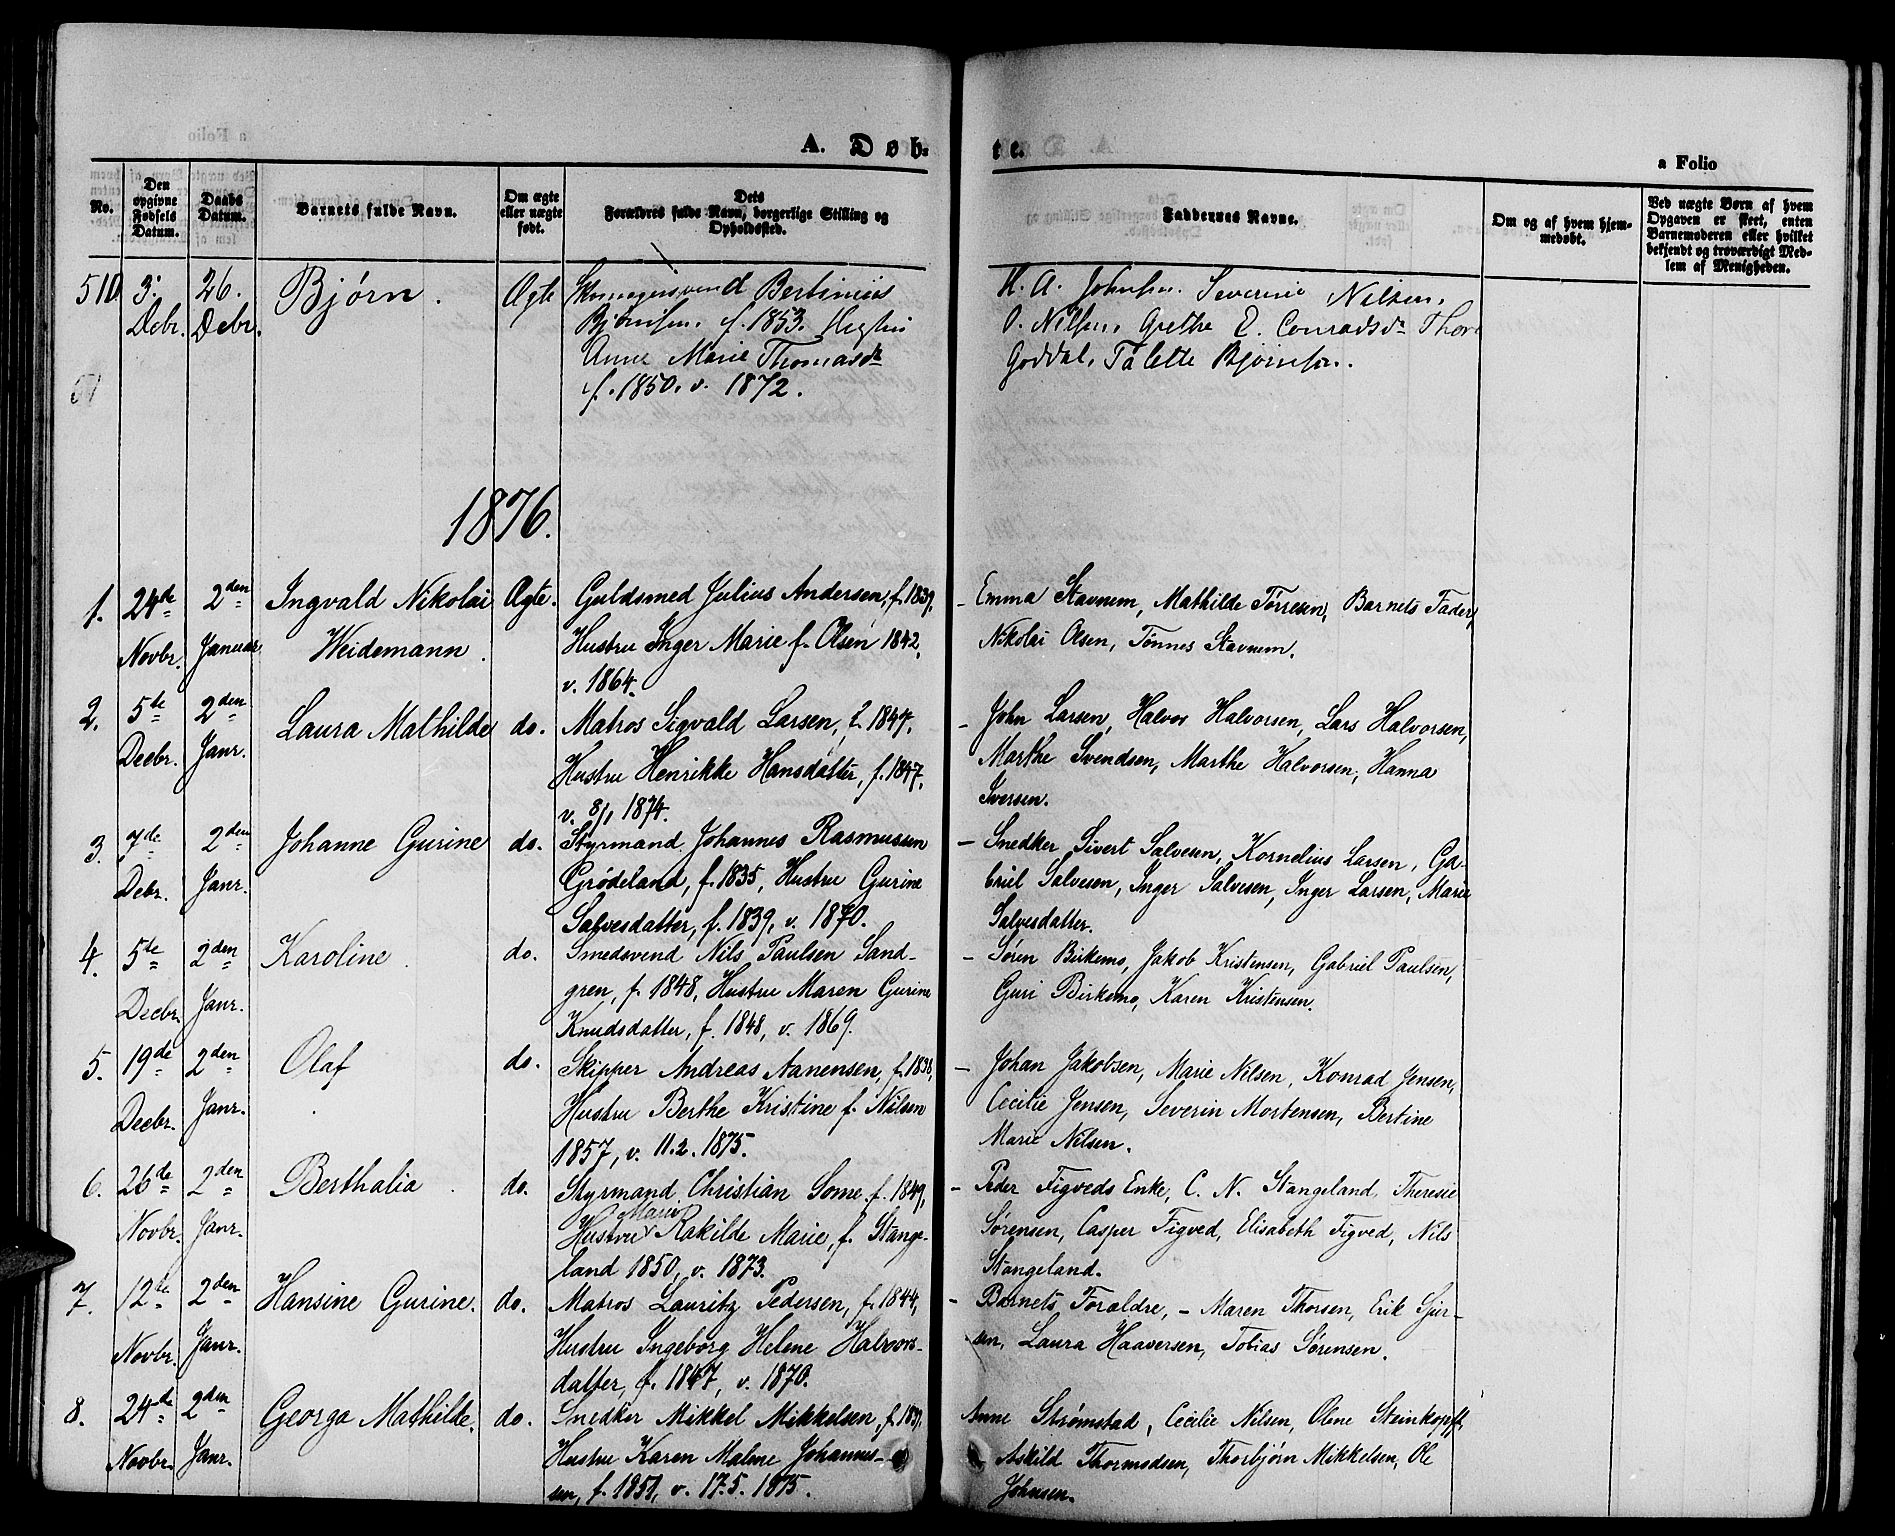 A. Døb-
te.
a Folio
No.
Den opgivne Fødsels Datum.
Daabs Datum.
Barnets fulde Navn.
Om ægte eller uægte født.
Dets Forældres fulde Navn, borgerlige Stilling og Opholdssted.
Faddernes Navne.
Om og af hvem hjemmedøbt.
Ved uægte Børn af hvem Opgaven er skeet, enten Barnemoderen eller hvilket bekjendt og troværdigt Medlem af Menigheden.
510 3. Debr. 26. Debr. Bjørn. Ægte
Skomagersvend Bertinius
Bjørnsen, f. 1853. Hustru
Anne Marie Thomasdr
f. 1850. v. 1872.
H. A. Johnsen. Severine Nilsen.
O. Nilsen. Grethe E. Conradsdr Thore
Goddal. Talette Bjørnsen.
1876.
1. 24de Novbr. 2den Januar Ingvald Nikolai Weidemann. Ægte.
Guldsmed Julius Andersen, f. 1839,
Hustru Inger Marie f. Olsen 1842,
v. 1864.
– Emma Stavnem, Mathilde Tørresen, Barnets Fader,
Nikolai Olsen, Tønnes Stavnem.
2. 5te Decbr. 2den Janr. Laura Mathilde do.
Matros Sigvald Larsen, f. 1847.
Hustru Henrikke Hansdatter, f. 1847.
v. 8/1 1874.
– John Larsen, Halvor Halvorsen, Lars Halvorsen,
Marthe Svendsen, Marthe Halvorsen, Hanna
Iversen.
3. 7de Debr. 2den Janr. Johanne Gurine do.
Styrmand Johannes Rasmussen
Grødeland, f. 1835, Hustru Gurine
Salvesdatter, f. 1839, v. 1870.
– Snedker Sivert Salvesen, Kornelius Larsen, Ga-
briel Salvesen, Inger Salvesen, Inger Larsen, Marie
Salvesdatter.
4. 5te Decbr. 2den Janr. Karoline. do.
Smedsvend Nils Paulsen Sand-
gren, f. 1848, Hustru Maren Gurine
Knudsdatter, f. 1848, v. 1869.
– Søren Birkemo, Jakob Kristensen, Gabriel Paulsen,
Guri Birkemo, Karen Kristensen.
5. 19de Decbr. 2den Janr. Olaf do.
Skipper Andreas Aanensen, f. 1838,
Hustru Berthe Kristine f. Nilsen
1857, v. 11.2.1875.
– Johan Jakobsen, Marie Nilsen, Konrad Jensen,
Cecilie Jensen, Severin Mortensen, Bertine
Marie Nilsen.
6. 26de Novbr. 2den Janr. Berthalia. do.
Styrmand Christian Some f. 1849,
Marie
Hustru Rakilde Marie, f. Stange-
land 1850, v. 1873.
– Peder Figveds Enke, C. N. Stangeland, Theresie
Sørensen, Casper Figved, Elisabeth Figved, Nils
Stangeland.
7. 12te Novbr. 2den Janr. Hansine Gurine. do.
Matros Lauritz Pedersen, f. 1844,
Hustru Ingeborg Helene Halvors-
datter, f. 1847, v. 1870.
– Barnets Forældre, – Maren Thorsen, Erik Sjur-
sen, Laura Haaversen, Tobias Sørensen.
8. 24de Novbr. 2den Janr. Georga Mathilde. do.
Snedker Mikkel Mikkelsen, f. 1851,
Hustru Karen Malene Johannes-
sen, f. 1851, v. 17.5.1875.
Anne Strømstad, Cecilie Nilsen, Olene Steinkopff,
Askild Thormodsen, Thorbjørn Mikkelsen, Ole
Johnsen.